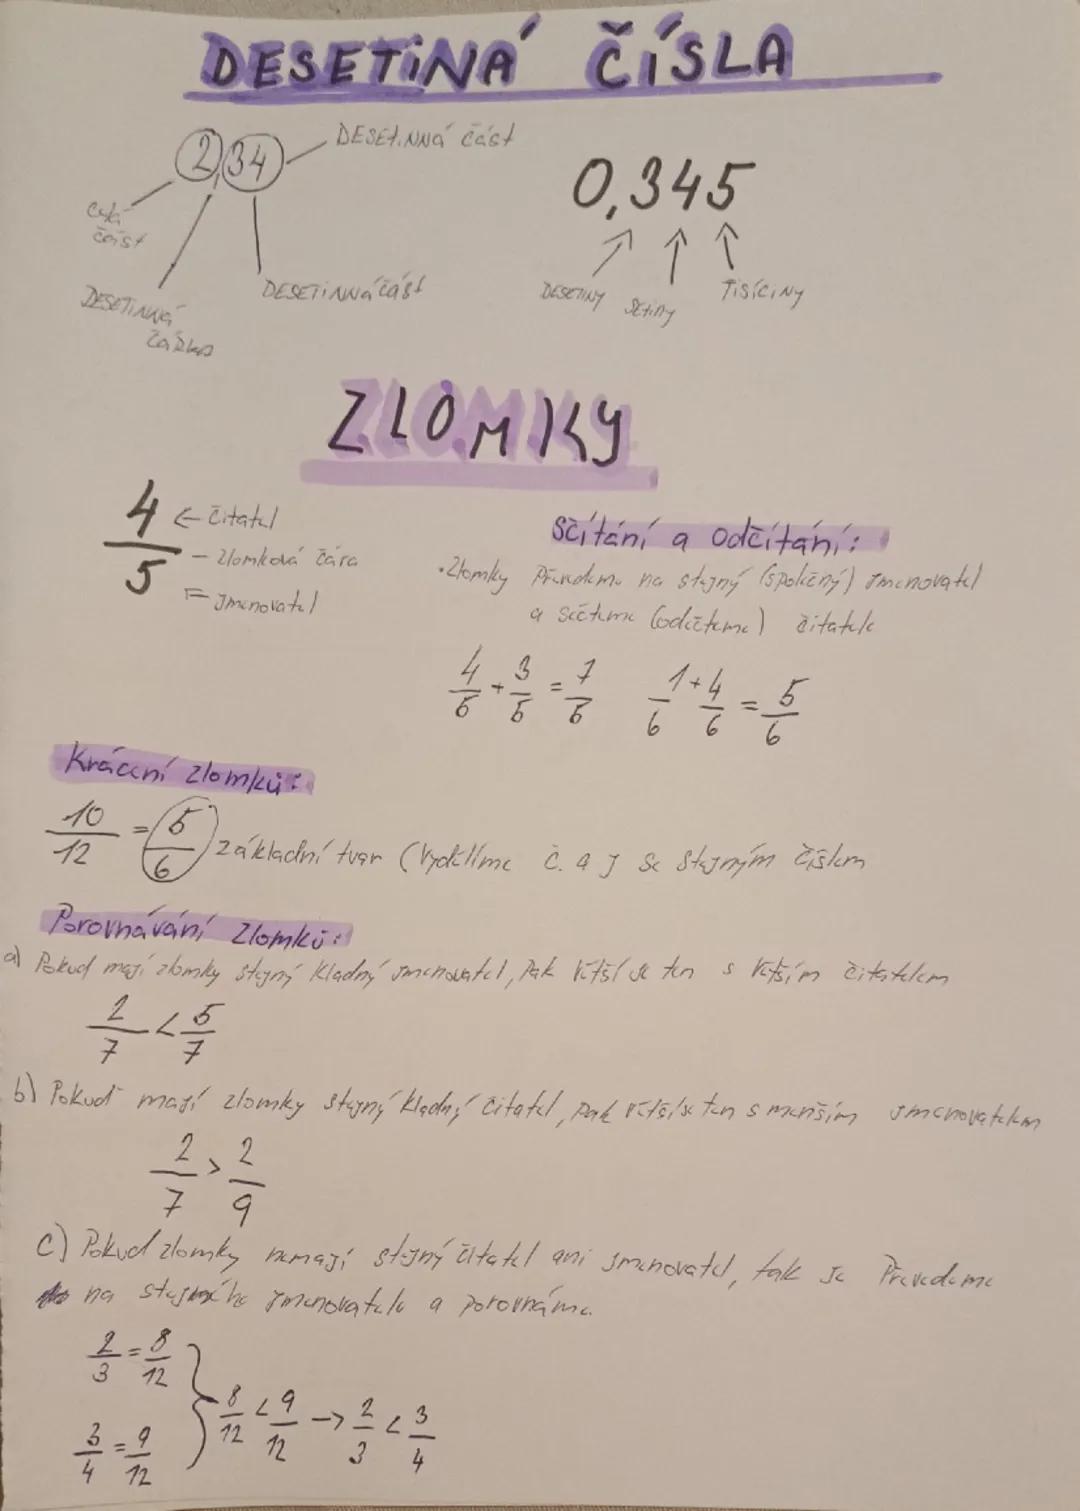 DESETINÁ ČÍSLA
2,34
DESETINNÁ část
celá
část
DESETINNÁ
čárka
DESETINNÁ část
0,345
DESETINY
Setiny
TISÍCINY
ZLOMKY
4/5
← čitatel
– zlomková čára
jmenovatel
Sčítání a odčítání:
• Zlomky převedeme na stejný (společný) jmenovatel
a sečteme (odečteme) čitatele
4/5 + 3/5 = 7/5
1/6 + 4/6 = 5/6
Krácení zlomků:
10/12 = 5/6 základní tvar (Vydělíme č. a j se stejným číslem
Porovnávání zlomků:
a) Pokud mají zlomky stejný kladný jmenovatel, pak větší je ten s větším čitatelem
2/7 < 5/7
b) Pokud mají zlomky stejný kladný čitatel, pak větší je ten s menším jmenovatelem
2/7 > 2/9
c) Pokud zlomky nemají stejný čitatel ani jmenovatel, tak je Převedeme
na stejného jmenovatele a porovnáme.
2/3 = 8/12
3/4 = 9/12
8/12 < 9/12 → 2/3 < 3/4